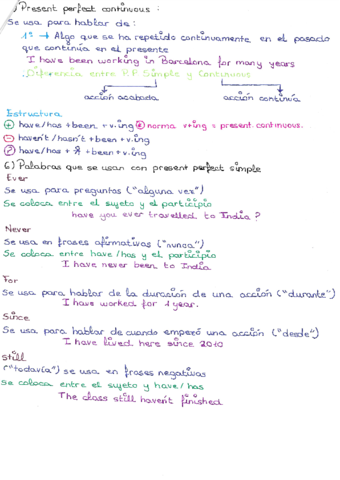 ) Present perfect continuous :
Se usa para hablar de :
1º → Algo que se ha repetido continuamente en el pasado
que continúa en el presente
I have been working in Barcelona for many years
Diferencia entre P.P. Simple y Continuous
acción acabada acción continúa
Estructura
+ have/has + been + v.ing * norma v+ing = present continuous.
- haven't / hasn't + been + v.ing
? have/has + + been + v.ing
6) Palabras que se usan con present perfect simple
Ever
Se usa para preguntas ("alguna vez")
Se coloca entre el sujeto y el participio
have you ever travelled to India ?
Never
Se usa en frases afirmativas ("nunca")
Se coloca entre have/has y el participio
I have never been to India
For
Se usa para hablar de la duración de una acción ("durante")
I have worked for 1 year.
Since
Se usa para hablar de cuando empezó una acción ("desde")
I have lived here since 2010
Still
("todavía") se usa en frases negativas
Se coloca entre el sujeto y have/has
The class still haven't finished